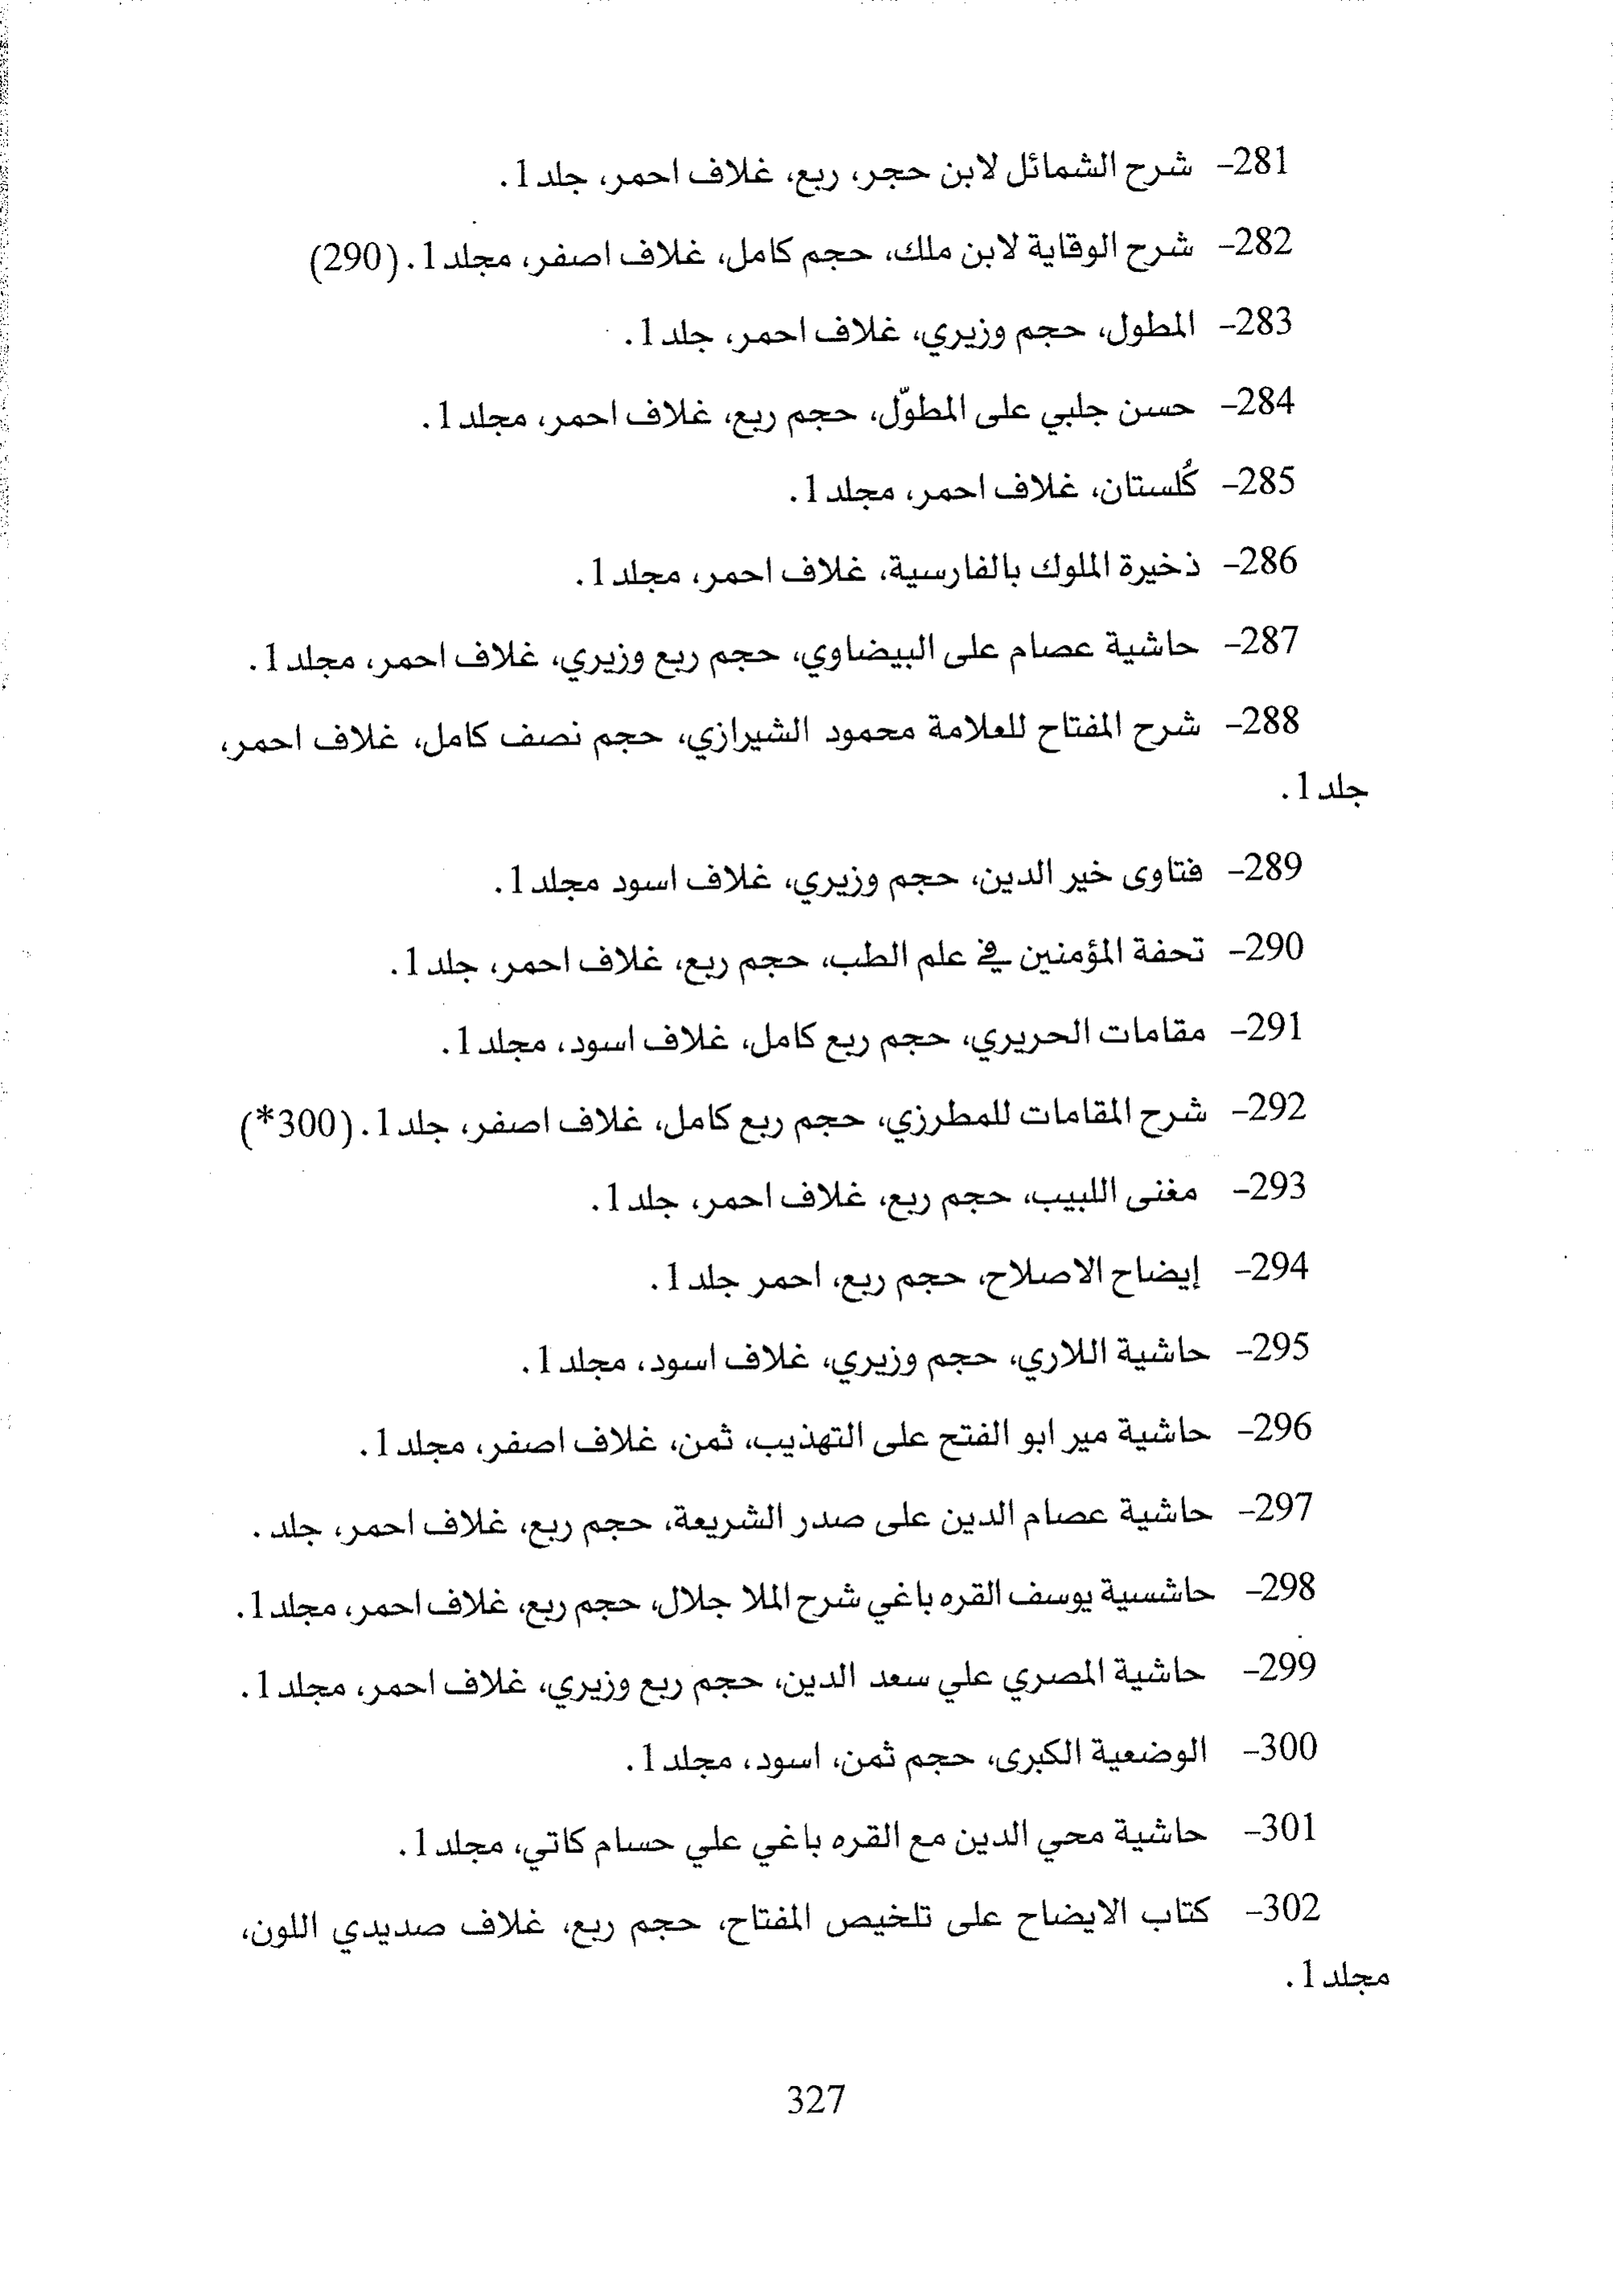 281- شرح الشمائل لابن حجر، ربع، غلاف احمر، جلد 1.
282- شرح الوقاية لابن ملك، حجم كامل، غلاف اصفر، مجلد 1. (290)
283- المطول، حجم وزيري، غلاف احمر، جلد 1.
284- حسن جلبي على المطوّل، حجم ربع، غلاف احمر، مجلد 1.
285- كُلستان، غلاف احمر، مجلد 1.
286- ذخيرة الملوك بالفارسية، غلاف احمر، مجلد 1.
287- حاشية عصام على البيضاوي، حجم ربع وزيري، غلاف احمر، مجلد 1.
288- شرح المفتاح للعلامة محمود الشيرازي، حجم نصف كامل، غلاف احمر،
جلد 1.
289- فتاوى خير الدين، حجم وزيري، غلاف اسود مجلد 1.
290- تحفة المؤمنين في علم الطب، حجم ربع، غلاف احمر، جلد 1.
291- مقامات الحريري، حجم ربع كامل، غلاف اسود، مجلد 1.
292- شرح المقامات للمطرزي، حجم ربع كامل، غلاف اصفر، جلد 1. (300*)
293- مغنى اللبيب، حجم ربع، غلاف احمر، جلد 1.
294- إيضاح الاصلاح، حجم ربع، احمر جلد 1.
295- حاشية اللاري، حجم وزيري، غلاف اسود، مجلد 1.
296- حاشية مير ابو الفتح على التهذيب، ثمن، غلاف اصفر، مجلد 1.
297- حاشية عصام الدين على صدر الشريعة، حجم ربع، غلاف احمر، جلد .
298- حاشسية يوسف القره باغي شرح الملا جلال، حجم ربع، غلاف احمر، مجلد 1.
299- حاشية المصري علي سعد الدين، حجم ربع وزيري، غلاف احمر، مجلد 1.
300- الوضعية الكبرى، حجم ثمن، اسود، مجلد 1.
301- حاشية محي الدين مع القره باغي علي حسام كاتي، مجلد 1.
302- كتاب الايضاح على تلخيص المفتاح، حجم ربع، غلاف صديدي اللون،
مجلد 1.
327